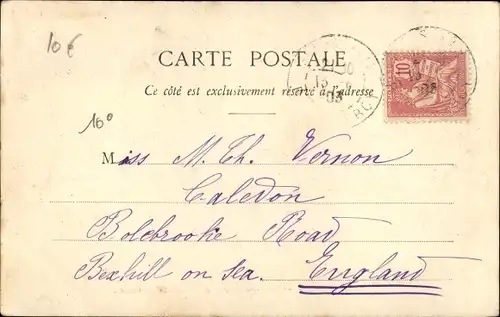 10 €
CARTE POSTALE
Ce côté est exclusivement réservé à l'adresse
10°
Miss M. Th. Vernon
Caledon
Bolebrooke Road
Bexhill on sea. England
10
03